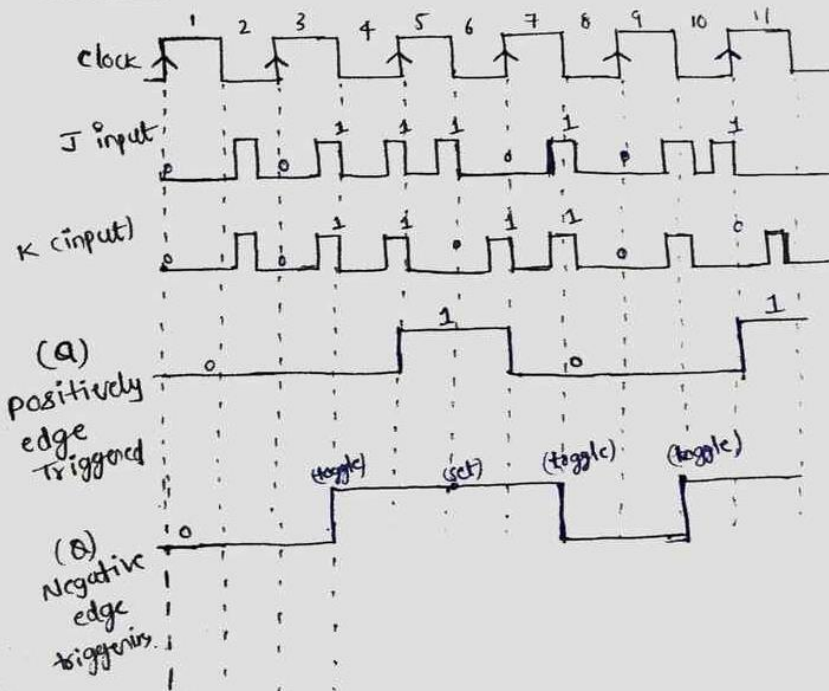 1 2 3 4 5 6 7 8 9 10 11
Clock
J input
0 0 1 1 1 0 1 0 1
K (input)
0 0 1 1 0 1 1 0 0
(Q)
Positively
edge
Triggered
0 1 0 1
(toggle) (set) (toggle) (toggle)
(Q)
Negative
edge
triggering.
0